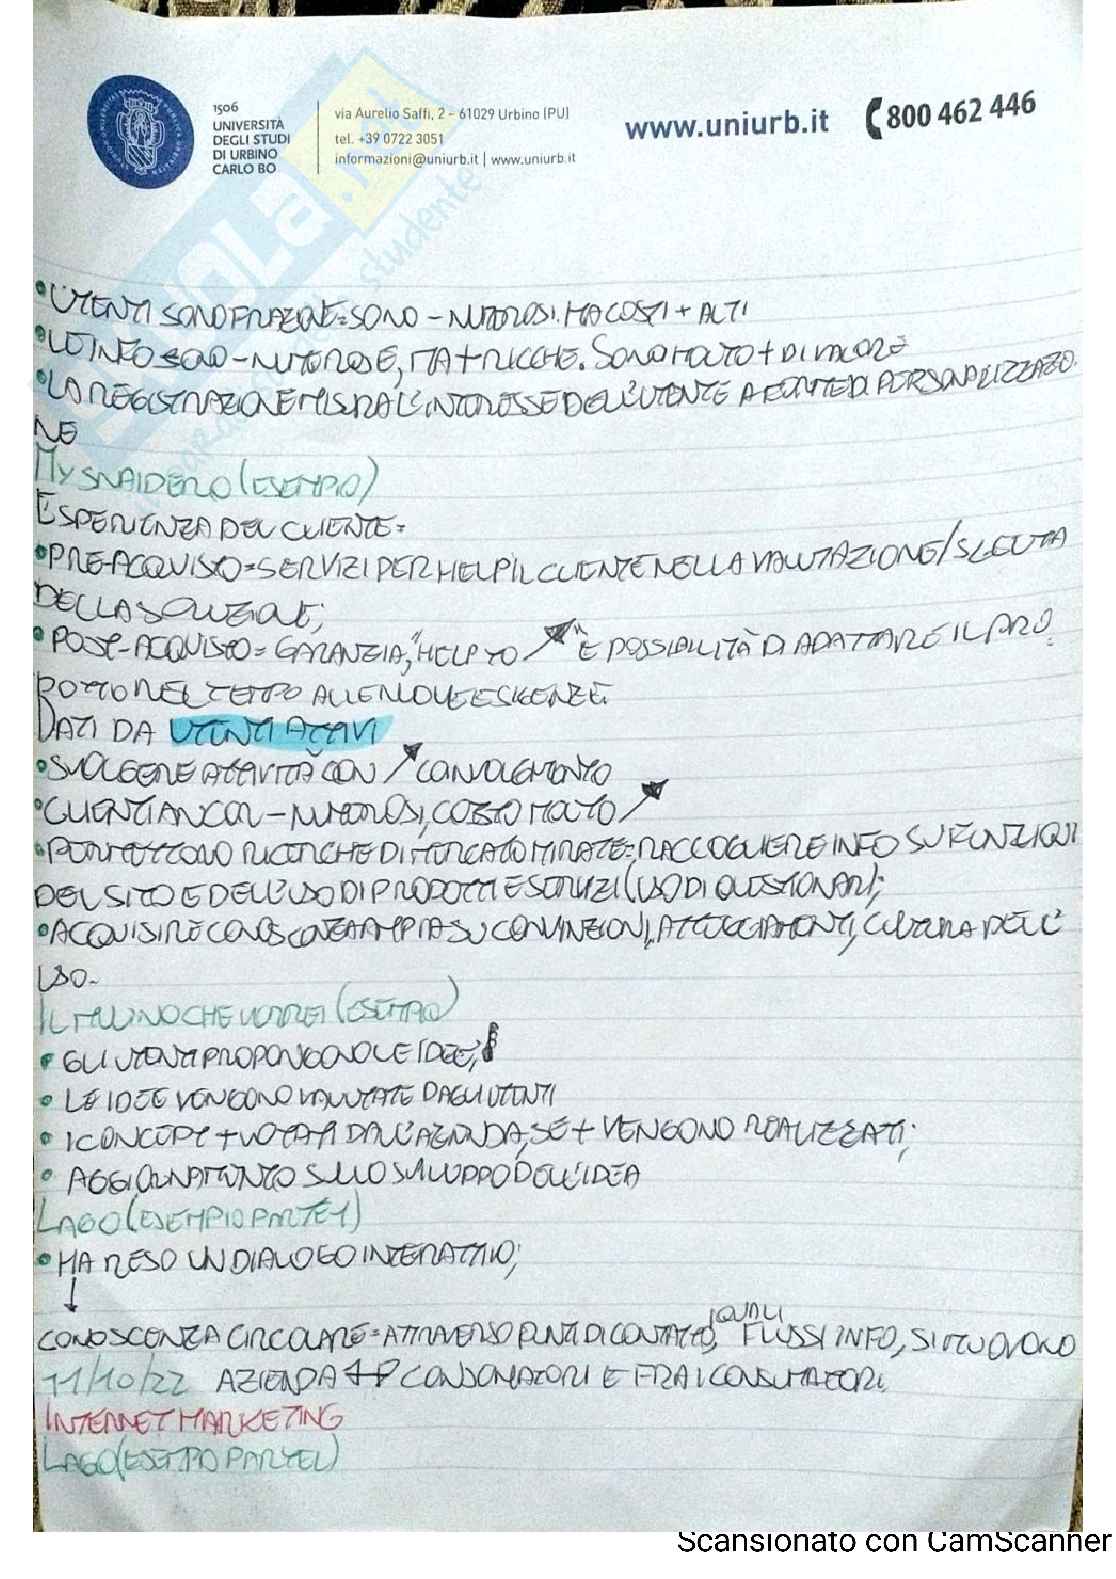 1506
UNIVERSITÀ
DEGLI STUDI
DI URBINO
CARLO BO
via Aurelio Saffi, 2 – 61029 Urbino (PU)
tel. +39 0722 3051
informazioni@uniurb.it | www.uniurb.it
www.uniurb.it
800 462 446
SKUOLA.net
studente
• UTENTI SONO FRAZIONE = SONO - NUMEROSI. MA COSTI + ALTI
• LE INFO SONO - NUMEROSE, MA + RICCHE. SONO MOLTO + DI VALORE
• LA REGISTRAZIONE MISURA L'INTERESSE DELL'UTENTE A FRONTE DI PERSONALIZZAZIO
NE
MY SNAIDERO (ESEMPIO)
ESPERIENZA DEL CLIENTE =
• PRE-ACQUISTO = SERVIZI PER HELP IL CLIENTE NELLA VALUTAZIONE/SCELTA
DELLA SOLUZIONE;
• POST-ACQUISTO = GARANZIA, "HELP TO ↗" E POSSIBILITÀ DI ADATTARE IL PRO
DOTTO NEL TEMPO ALLE NUOVE ESIGENZE
DATI DA UTENTI ATTIVI
• SVOLGERE ATTIVITÀ CON ↗ COINVOLGIMENTO
• CLIENTI ANCOR - NUMEROSI, COSTO MOLTO ↗
• PERMETTONO RICERCHE DI MERCATO MIRATE = RACCOGLIERE INFO SU FUNZIONI
DEL SITO E DELL'USO DI PRODOTTI E SERVIZI (USO DI QUESTIONARI);
• ACQUISIRE CONOSCENZA AMPIA SU CONVINZIONI, ATTEGGIAMENTI, CULTURA DELL'
USO.
IL MULINO CHE VORREI (ESEMPIO)
• GLI UTENTI PROPONGONO LE IDEE;
• LE IDEE VENGONO VALUTATE DAGLI UTENTI
• I CONCEPT + VOTATI DALL'AZIENDA, SE + VENGONO REALIZZATI;
• AGGIORNAMENTO SULLO SVILUPPO DELL'IDEA
LAGO (ESEMPIO PARTE 1)
• HA RESO UN DIALOGO INTERATTIVO;
↓
CONOSCENZA CIRCOLARE = ATTRAVERSO PUNTI DI CONTATTO, I QUALI FLUSSI INFO, SI MUOVONO
11/10/22 AZIENDA CONSUMATORI E FRA I CONSUMATORI
INTERNET MARKETING
LAGO (ESEMPIO PARTE 2)
Scansionato con CamScanner